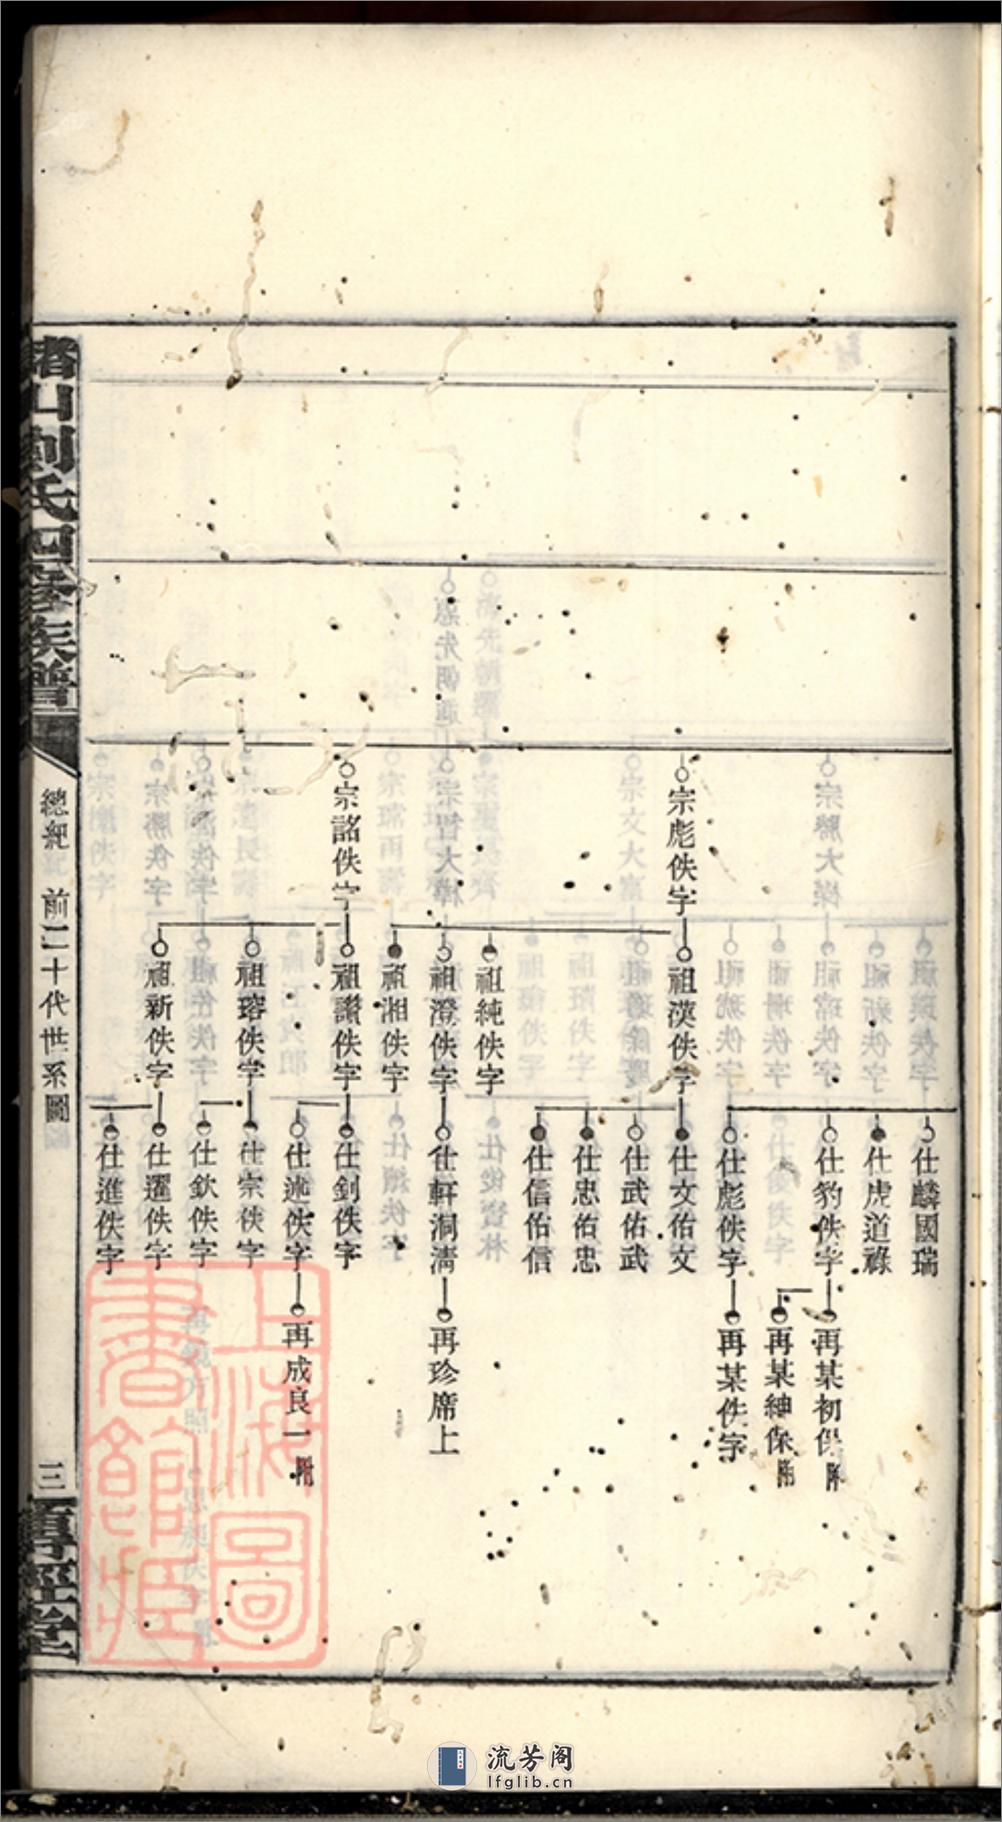 宗彪佚字
宗詺佚字
祖漢佚字
祖純佚字
祖澄佚字
祖湘佚字
祖讚佚字
祖瑢佚字
祖新佚字
仕麟國瑞
仕虎道祿
仕豹佚字
仕彪佚字
仕文佑文
仕武佑武
仕忠佑忠
仕信佑信
仕軒洞清
仕釗佚字
仕述佚字
仕宗佚字
仕欽佚字
仕暹佚字
仕進佚字
再某初保 附
再某紳保 附
再某佚字
再珍席上
再成良一 附
山劉氏四修族譜
總紀 前二十代世系圖
三
上海圖
書館藏
流芳阁
lfglib.cn